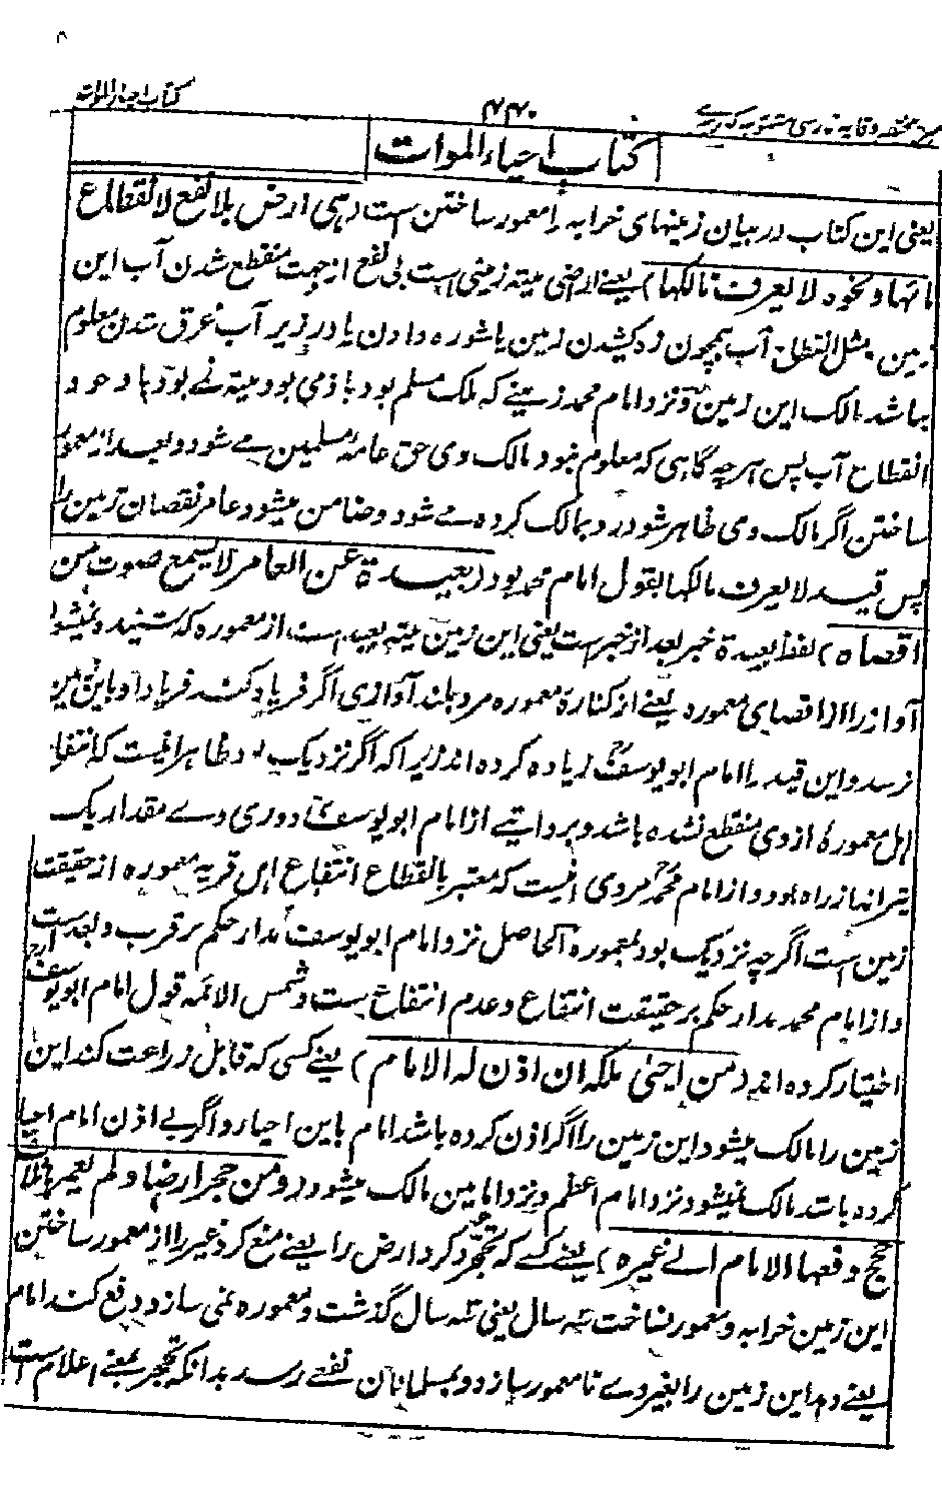 کتاب احیاء الموات
۴۴۰
شرح مختصر وقایہ فارسی
کتاب احیاء الموات
یعنی این کتاب در بیان زمینهای خرابه را معمور ساختن ست (هی ارض بلا نفع لانقطاع
مائها ونحوه لا یعرف مالکها) یعنے ارضی میته زمینی است بی نفع از جهت منقطع شدن آب این
زمین مثل انقطاع آب همچون زه کشیدن زمین یا شوره دادن یا در زیر آب غرق شدن معلوم
نباشد مالک این زمین و نزد امام محمد زمینے که ملک مسلم بود یا ذمی بود میته نے بود با وجود
انقطاع آب پس هرچه گاهی که معلوم نبود مالک وی حق عامه مسلمین مے شود و بعد از معمور
ساختن اگر مالک وی ظاهر شود رد بمالک کرده مے شود و ضامن میشود عامر نقصان زمین را
پس قید لا یعرف مالکها بقول امام محمد بود (بعیدة عن العامر لا یسمع صوت من
اقصاه) لفظ بعیدة خبر بعد از خبر ست یعنی این زمین میته بعید است از معموره که شنیده نمیشود
آواز را از اقصای معموره یعنے از کنارهٔ معموره مرد بلند آوازی اگر فریاد کند فریاد او باین زمین
نرسد و این قید را امام ابو یوسفؒ زیاده کرده اند زیرا که اگر نزدیک بود ظاهر اینست که انتفاع
اهل معموره از وی منقطع نشده باشد و بروایتے از امام ابو یوسفؒ دوری وے مقدار یک
تیرانداز راه بود و از امام محمدؒ مروی اینست که معتبر بانقطاع انتفاع اهل قریه معموره از حقیقت
زمین است اگرچه نزدیک بود بمعموره الحاصل نزد امام ابو یوسفؒ مدار حکم بر قرب و بعد ست
و از امام محمد مدار حکم بر حقیقت انتفاع و عدم انتفاع ست و شمس الائمه قول امام ابو یوسف
اختیار کرده اند (من احیی ملکه ان اذن له الامام) یعنے کسی که قابل زراعت کند این
زمین را مالک میشود این زمین را اگر اذن کرده باشد امام باین احیاء و اگر بے اذن امام احیا
کرده باشد مالک نمیشود نزد امام اعظم و نزد امامین مالک میشود (ومن حجر ارضا ولم یعمرها ثلاث
حجج دفعها الامام الے غیره) یعنے کسے که تحجر کرد ارض را یعنے منع کرد غیر را از معمور ساختن
این زمین خرابه و معمور نساخت سه سال یعنی سه سال گذشت و معموره نمی سازد دفع کند امام
یعنے دهد این زمین را بغیر وے تا معمور سازد و بمسلمانان نفعے رسد بدانکه تحجر بمعنے اعلام است